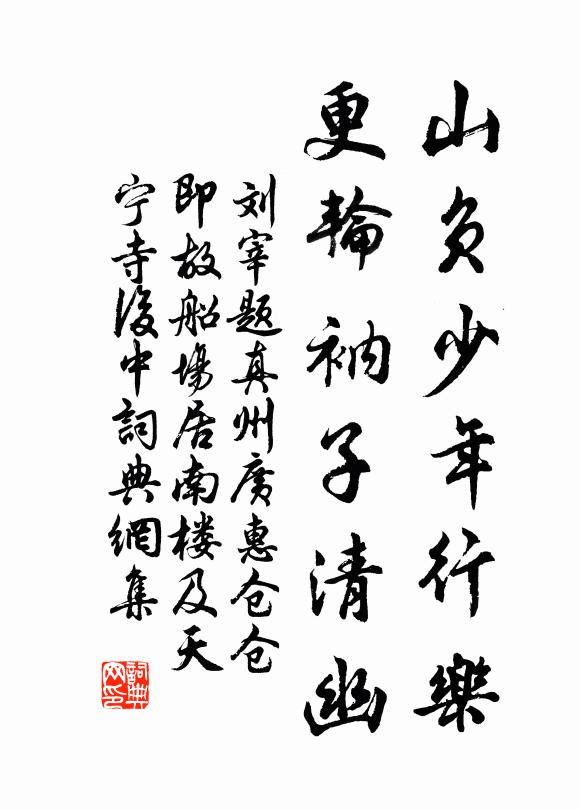 山负少年行樂
更輪衲子清幽
刘宰题真州廣惠仓仓
即故船場居南楼及天
宁寺後中詞典網集
詞典网印